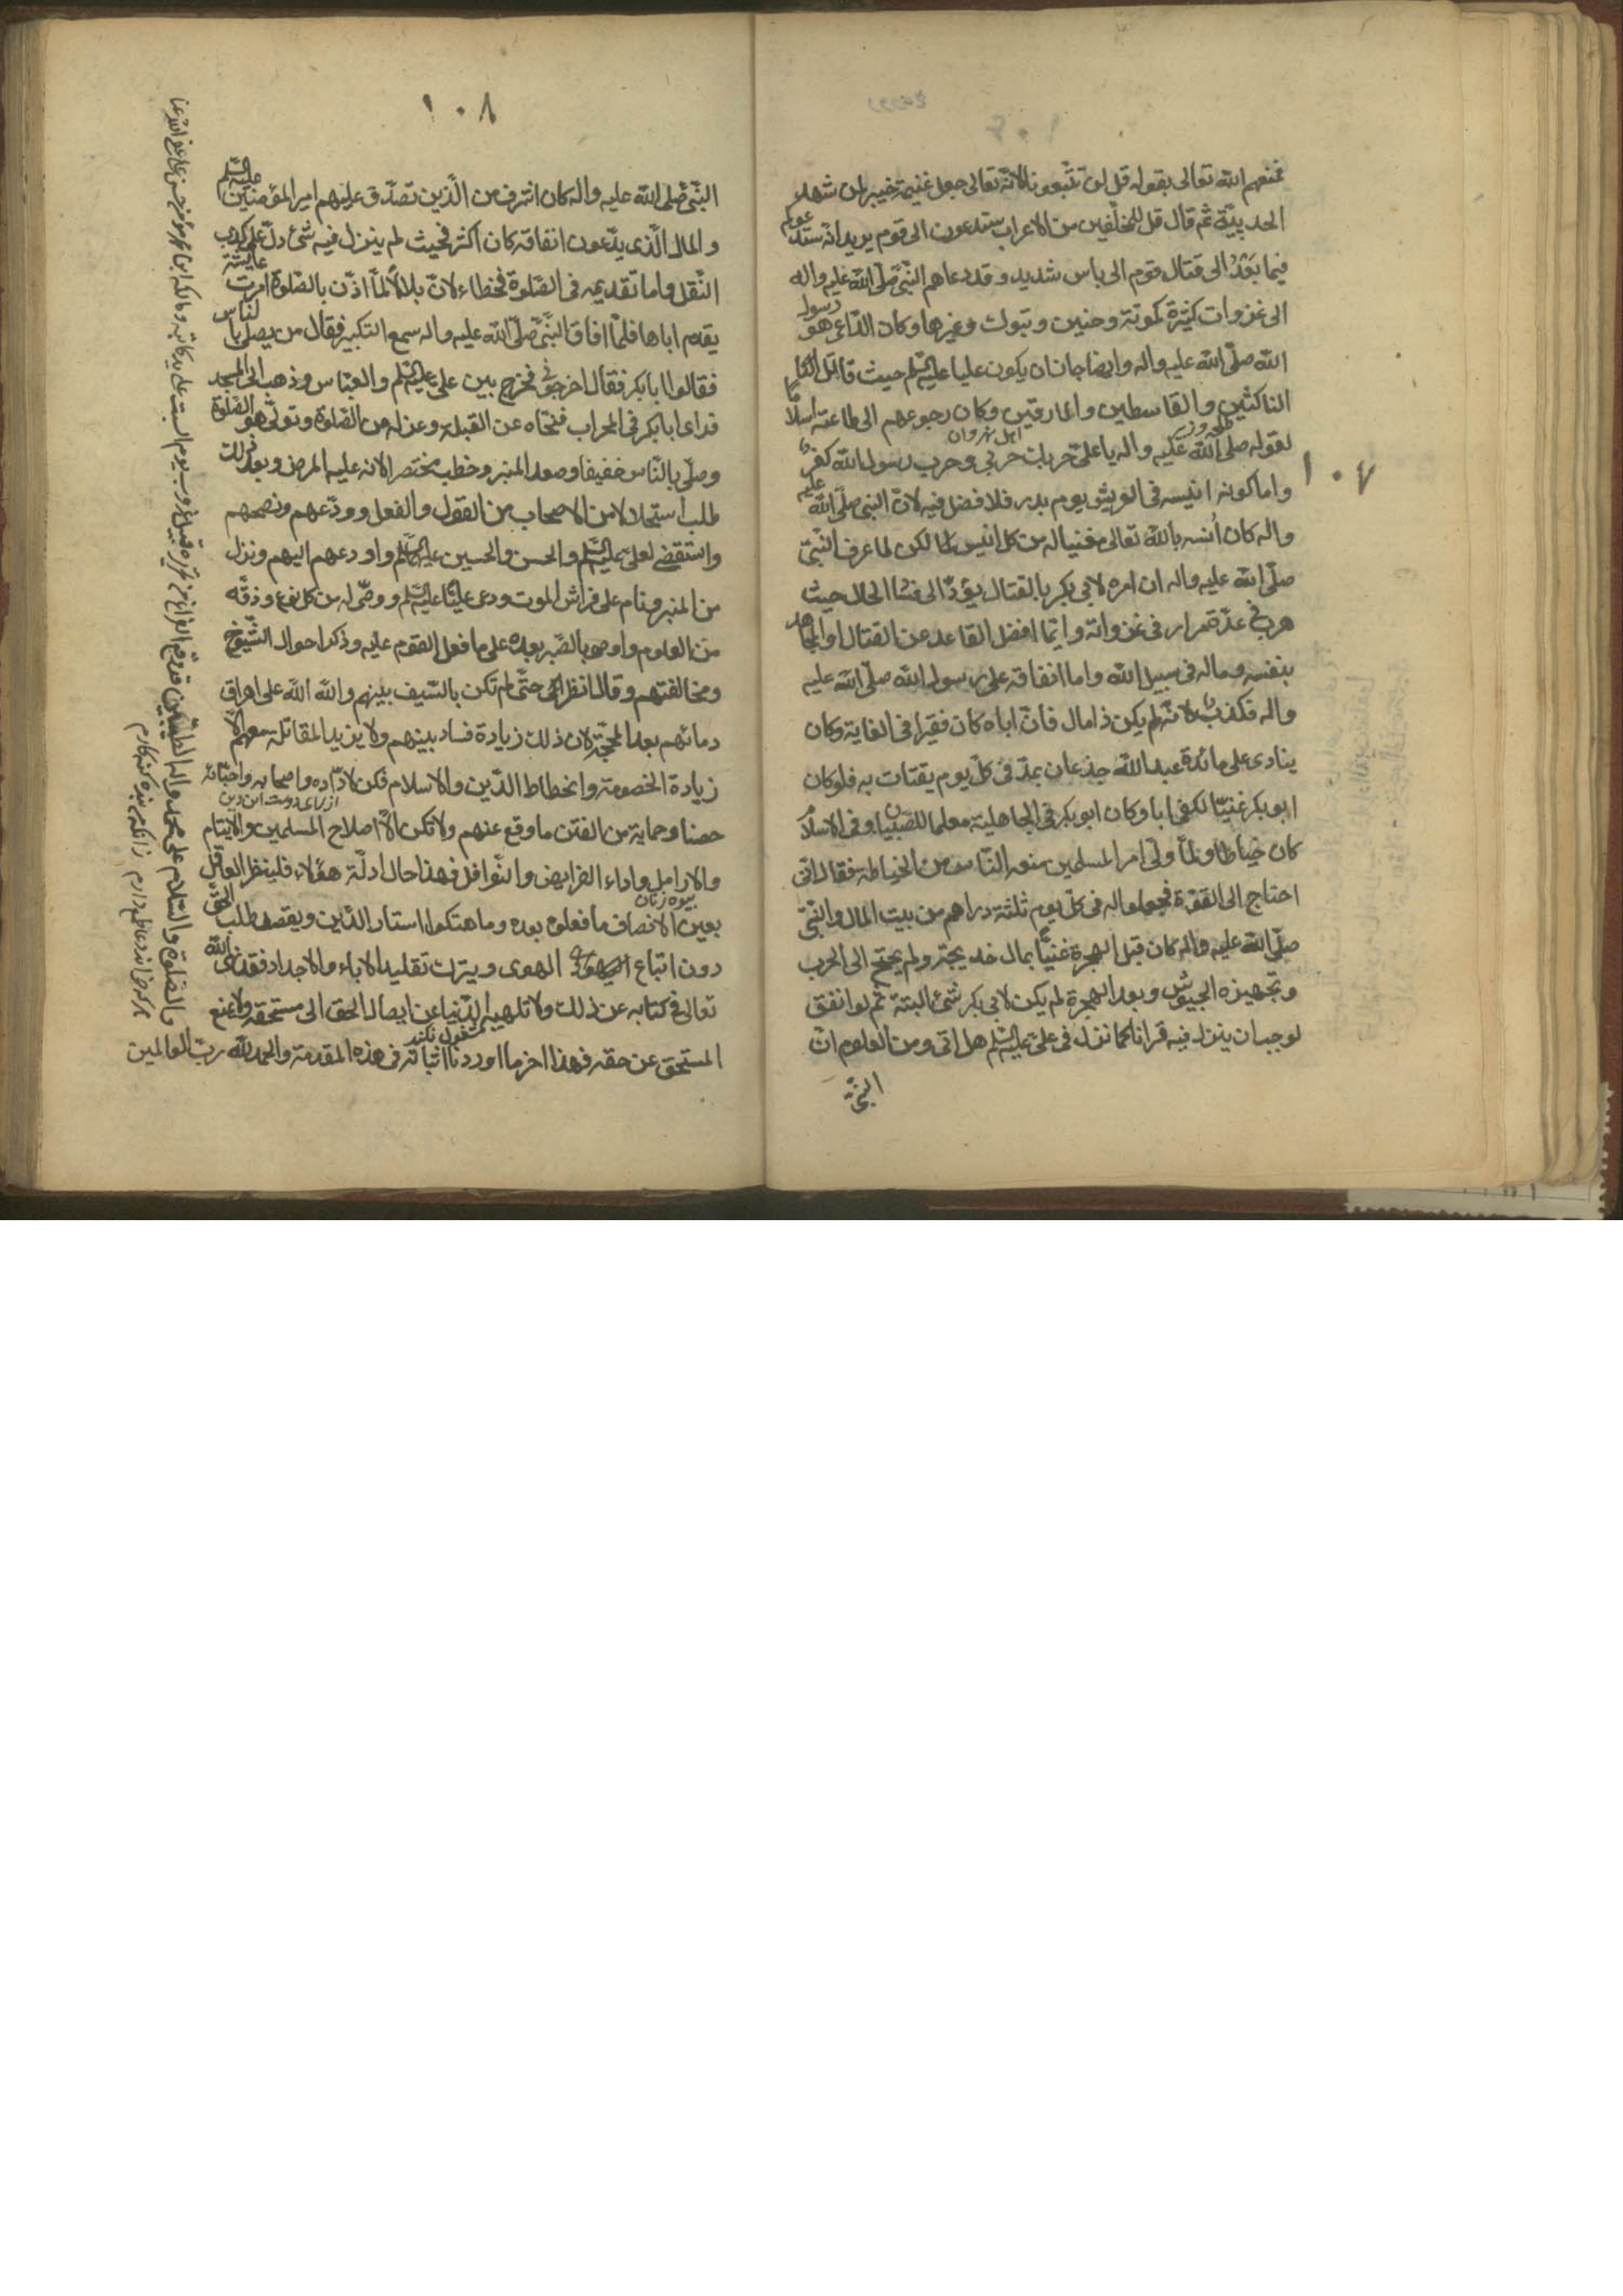 فمنعهم الله تعالى بقوله قل لن تتبعونا لانه تعالى جعل غنيمة خيبر لمن شهد
الحديبيّة ثم قال قل للمخلّفين من الاعراب ستدعون الى قوم يريد انه سندعوكم
فيما بَعْدُ الى قتال قوم الى باس شديد وقد دعاهم النّبيّ صلّى الله عليه واله
الى غزوات كثيرة كموتة وحنين وتبوك وغيرها وكان الدّاعى هو رسول
الله صلّى الله عليه واله وايضا جاز ان يكون عليا عليه السّلم حيث قاتل
الناكثين والقاسطين والمارقين وكان رجوعهم الى طاعته اسلاما
اهل نهروان
لقوله صلى الله عليه واله يا علىّ حربك حربي وحرب رسول الله كفر
١٠٧
واما كونه انيسه فى العريش يوم بدر فلا فضل فيه لانّ النبى صلّى الله عليه
واله كان اُنسه بالله تعالى مغنيا له من كل انيس لكن لما عرف النّبىّ
صلّى الله عليه واله ان امره لابى بكر بالقتال يؤدّ الى فساد الحال حيث
هرب عدّة مرار فى غزواته وايّما افضل القاعد عن القتال او المجاهد
بنفسه وماله فى سبيل الله واما انفاقه على رسول الله صلّى الله عليه
واله فكذب لانّه لم يكن ذا مال فانّ اباه كان فقيرا فى الغاية وكان
ينادى على مائدة عبد الله جذعان بمدّ فى كلّ يوم يقتات به فلو كان
ابو بكر غنيّا لكفى اباه وكان ابو بكر فى الجاهلية معلما للصّبيان وفى الاسلام
كان خياطا ولمّا ولّى امر المسلمين منعه النّاس من الخياطة فقال انى
احتاج الى القوّة فجعلوا له فى كلّ يوم ثلثة دراهم من بيت المال والنّبىّ
صلّى الله عليه واله كان قبل الهجرة غنيّا بمال خديجة ولم يحتج الى الحرب
وتجهيزه الجيوش وبعد الهجرة لم يكن لابى بكر شئ البتة ثم لو انفق
لوجب ان ينزل فيه قرانا كما نزل فى علىّ عليه السّلم هل اتى ومن المعلوم انّ
النّبىّ
١٠٨
النّبىّ صلى الله عليه واله كان اشرف من الّذين تصدّق عليهم امير المؤمنين عليه السّلم
والمال الّذى يدّعون انفاقه كان اكثر فحيث لم ينزل فيه شئ دلّ على كذب
النّقل واما تقديمه فى الصّلوة فخطاء لانّ بلالاً لمّا اذّن بالصّلوة امرت عايشة
يقدم اباها فلمّا افاق النّبىّ صلّى الله عليه واله سمع التكبير فقال من يصلى بالناس
فقالوا ابا بكر فقال اخرجونى فخرج بين علىّ عليه السّلم والعبّاس وذهب الى المسجد
فراى ابا بكر فى المحراب فنحّاه عن القبلة وعزله من الصّلوة وتولّى هو الصّلوة
وصلّى بالنّاس خفيفا وصعد المنبر وخطب مختصرا لانه عليه المرض وبعد ذلك
طلب استحلالا من الاصحاب من القول والفعل وودّعهم ونصحهم
واستقضى لعلىّ عليه السّلم والحسن والحسين عليهم السّلم واودعهم اليهم ونزل
من المنبر ونام على فراش الموت ودعى عليّا عليه السّلم ووصّى له من كل نوع وزقّه
من العلوم واوصى بالصّبر بعده على ما فعل القوم عليه وذكر احوال الشّيوخ
ومخالفتهم وقال انظر الىّ حتّى لم تكن بالسّيف بينهم والله الله على اهراق
دمائهم بعد الحجّة لان ذلك زيادة فساد بينهم ولا يزيد المقاتلة معهم الّا
زيادة الخصومة وانحطاط الدّين والاسلام فكن لاولاده واصحابه واحبّائه
از براى دوست اين دين
حصنا وحماية من الفتن ما وقع عنهم ولا تكن الّا اصلاح المسلمين والايتام
والارامل واداء الفرايض والنّوافل فهذا حال ادلّة هؤلاء فلينظر العاقل
بيوه زنان
بعين الانصاف ما فعلوه بعده وما هتكوا استار الدّين ويقصد طلب الحقّ
دون اتباع الهوى ويترك تقليد الاباء والاجداد فقد نهى الله
تعالى فى كتابه عن ذلك ولا تلهيهم الدّنيا عن ايصال الحق الى مستحقه ولا يمنع
مشغول نكند
المستحق عن حقه فهذا اخر ما اوردنا اثباته فى هذه المقدمة والحمد لله ربّ العالمين
والصّلوة والسّلام على محمد واله الطّيّبين قد وقع الفراغ من تحريره قبيل غروب يوم السبت على يد كاتبه ومالكه
هر كه خواند دعا طمع دارم زانكه من بنده كنه كارم